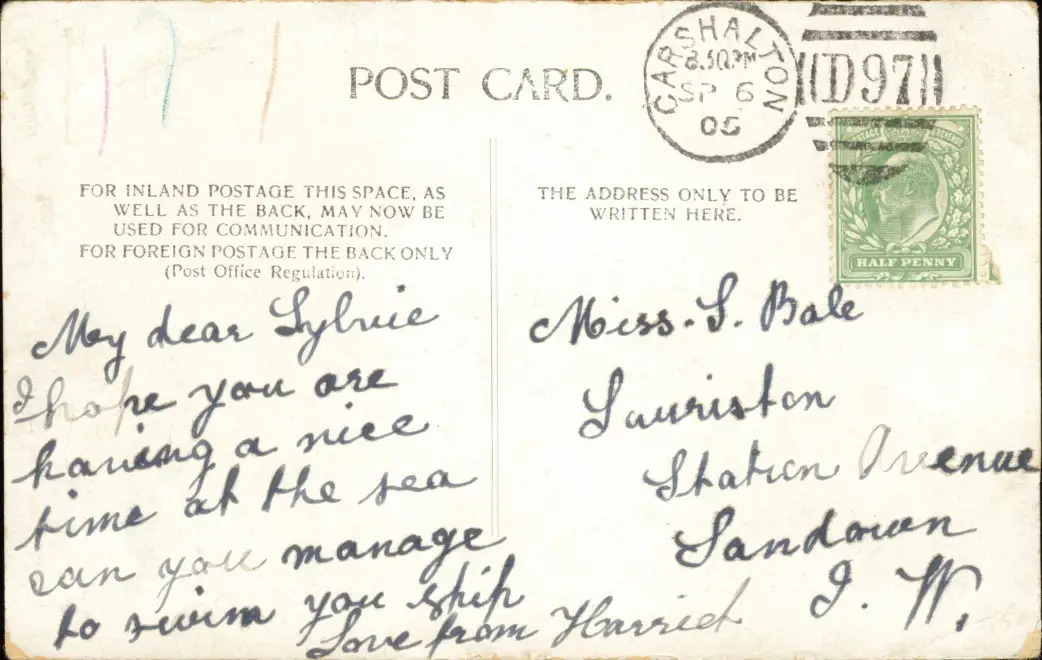 POST CARD.
CARSHALTON
8.30PM
SP 6
05
D97
POSTAGE REVENUE
HALF PENNY
FOR INLAND POSTAGE THIS SPACE, AS
WELL AS THE BACK, MAY NOW BE
USED FOR COMMUNICATION.
FOR FOREIGN POSTAGE THE BACK ONLY
(Post Office Regulation).
THE ADDRESS ONLY TO BE
WRITTEN HERE.
My dear Sylvie
I hope you are
having a nice
time at the sea
can you manage
to swim you ship
Love from Harriet
Miss. S. Bale
Lauriston
Station Avenue
Sandown
I. W.